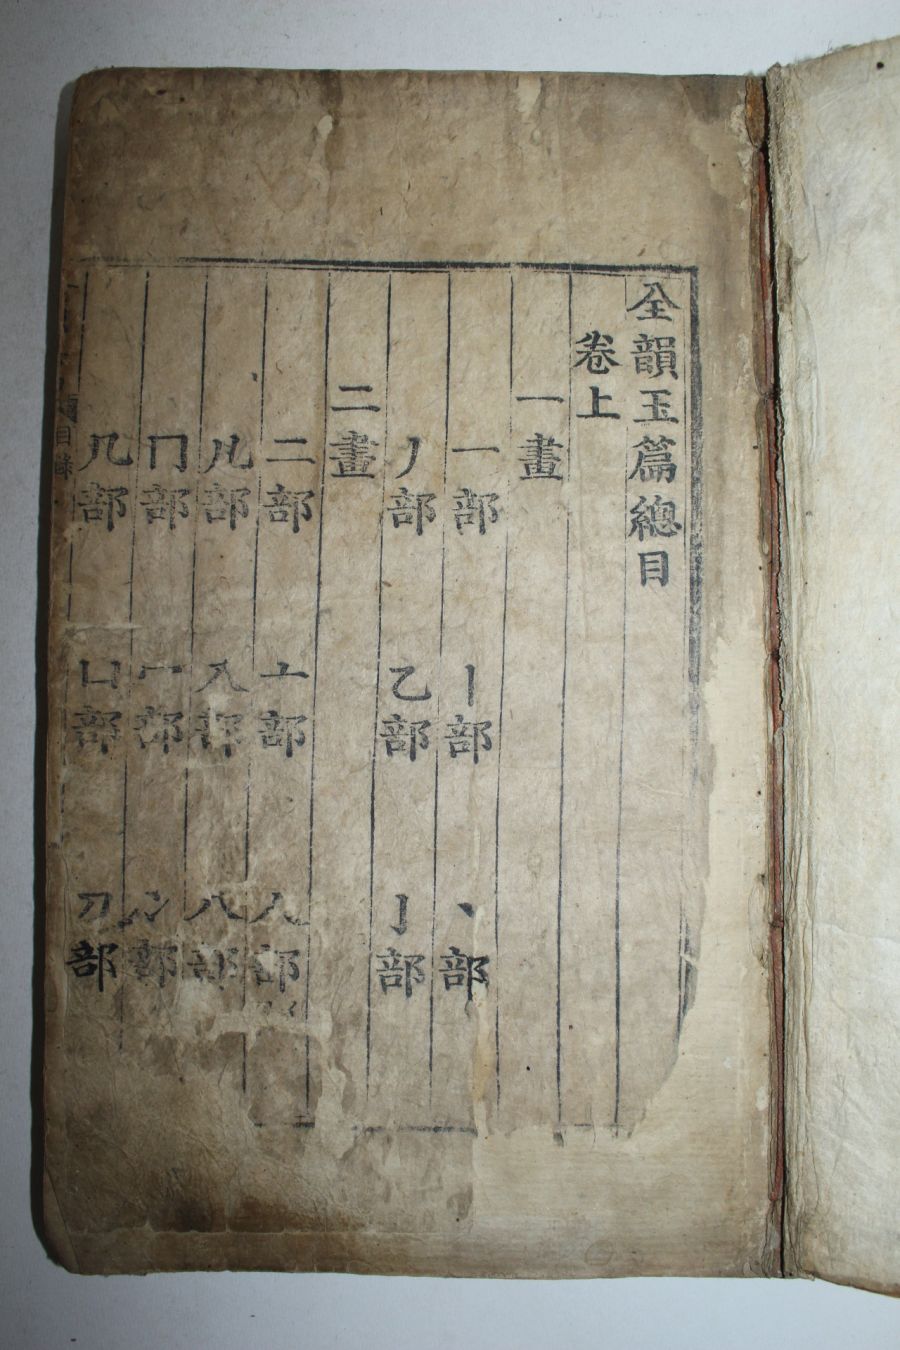 全韻玉篇總目
卷上
一畫
一部 丨部 丶部
丿部 乙部 亅部
二畫
二部 亠部 人部
儿部 入部 八部
冂部 冖部 冫部
几部 凵部 刀部
目錄